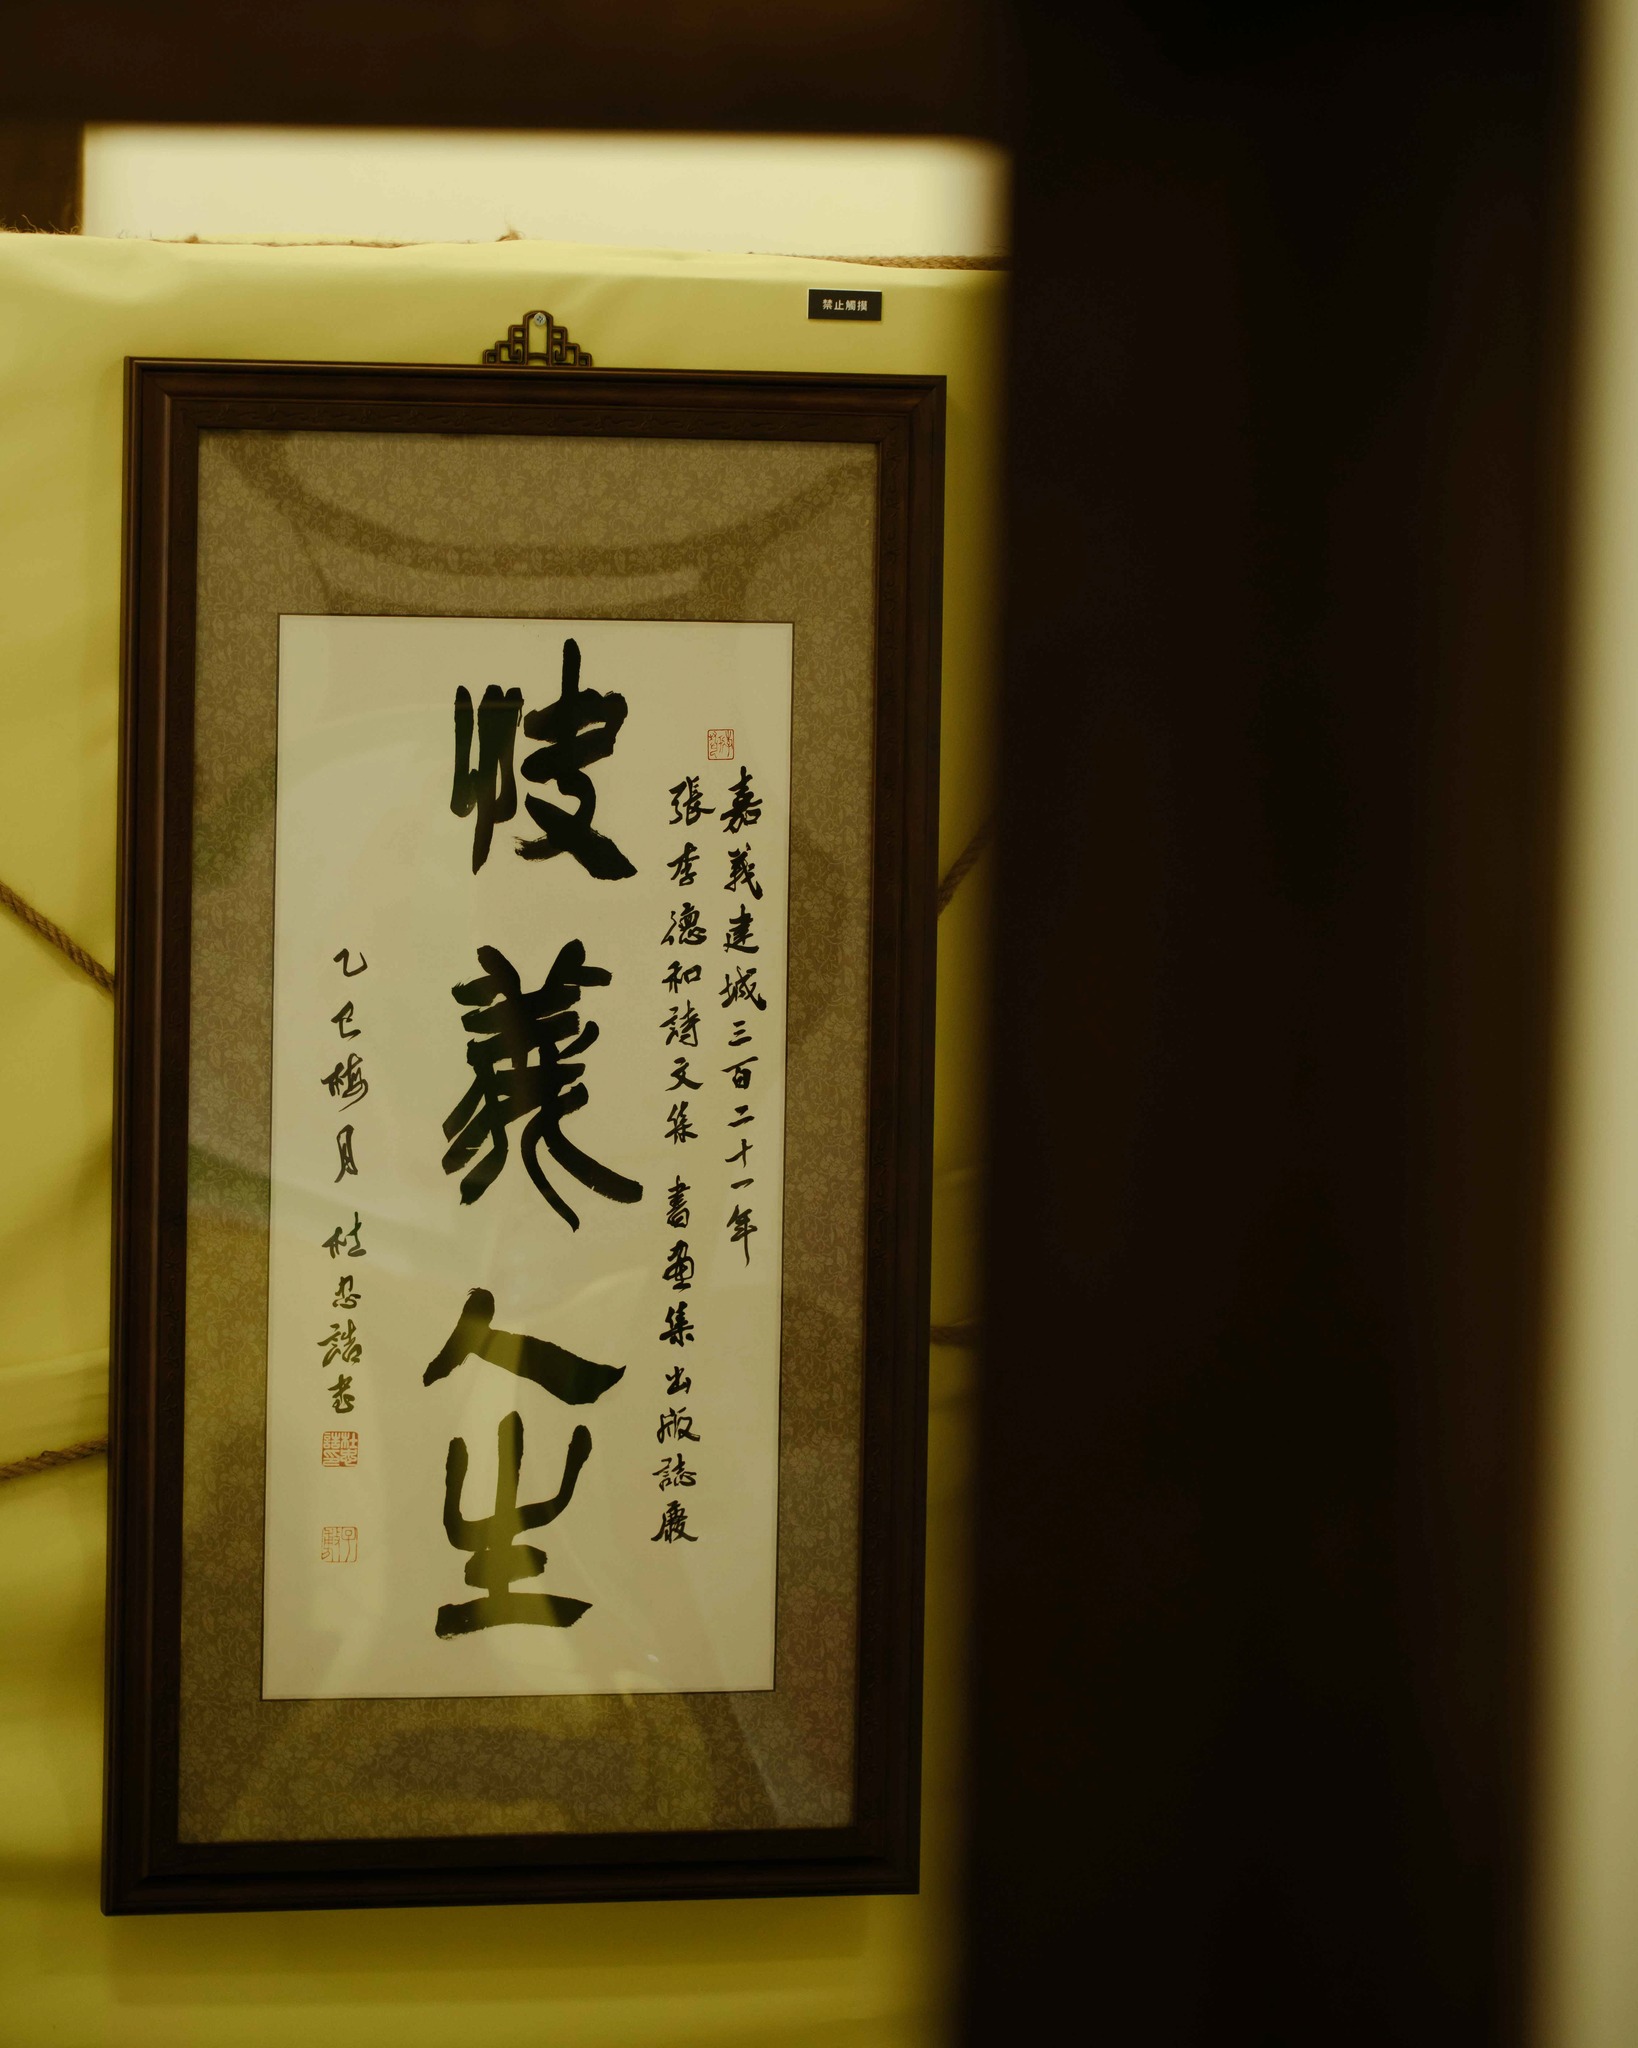 禁止觸摸
嘉義建城三百二十一年
張李德和詩文集 書畫集出版誌慶
人生
乙巳梅月 杜忠誥書
杜忠誥印